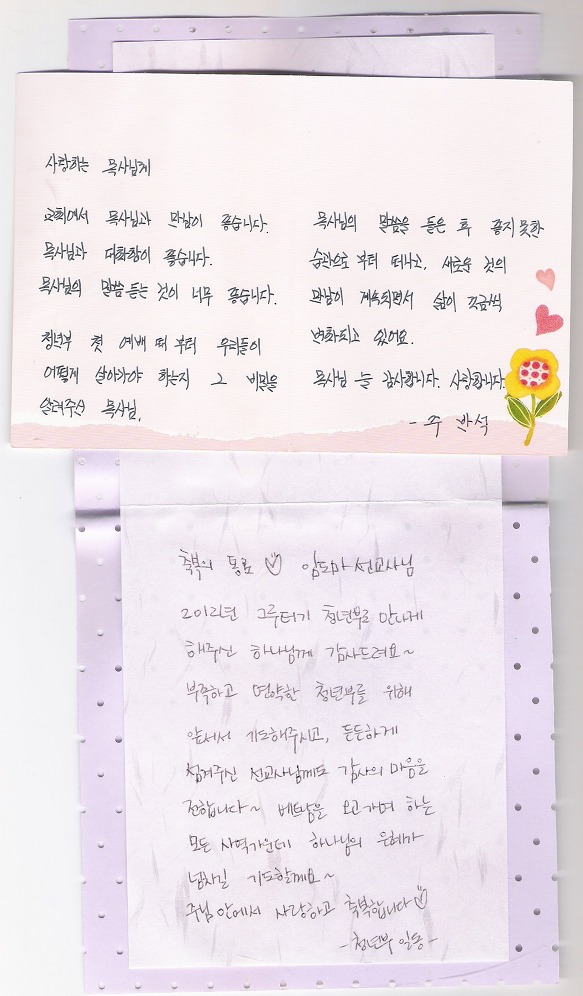 사랑하는 목사님께
교회에서 목사님과 만남이 좋습니다.
목사님과 대화함이 좋습니다.
목사님의 말씀 듣는 것이 너무 좋습니다.
청년부 첫 예배 때 부터 우리들이
어떻게 살아가야 하는지 그 비밀을
알려주신 목사님,
목사님의 말씀을 들은 후 좋지 못한
습관으로 부터 떠나고, 새로운 것의
만남이 계속되면서 삶이 조금씩
변화되고 있어요.
목사님 늘 감사합니다. 사랑합니다
- 주 반석
축복의 통로 ♡ 임도마 선교사님
2012년 그루터기 청년부로 만나게
해주신 하나님께 감사드려요~
부족하고 연약한 청년부를 위해
앞서서 기도해주시고, 든든하게
섬겨주신 선교사님께도 감사의 마음을
전합니다~ 베트남을 오고가며 하는
모든 사역가운데 하나님의 은혜가
넘치길 기도할께요~
주님 안에서 사랑하고 축복합니다♡
- 청년부 일동 -